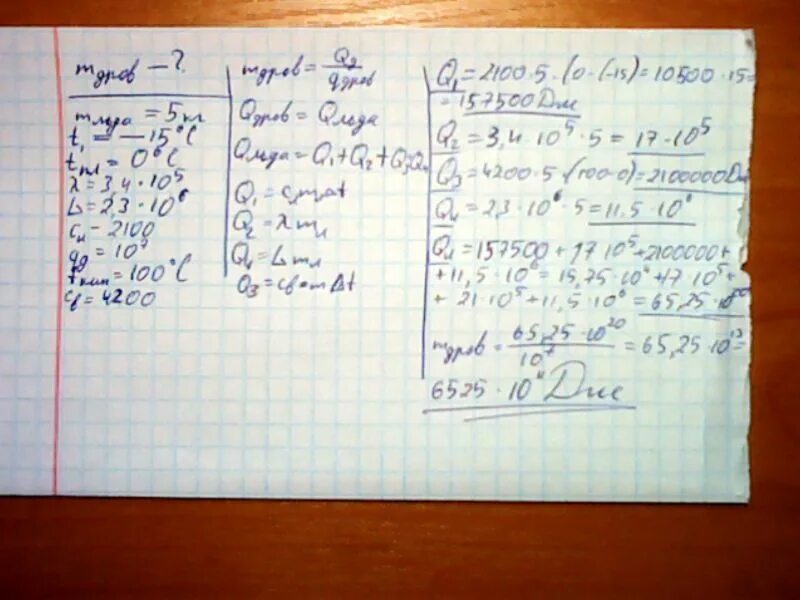 mдров – ?
mльда = 5 кг
t₁ = –15°C
tпл = 0°C
λ = 3,4 · 10⁵
L = 2,3 · 10⁶
cл – 2100
qд = 10⁷
tкип = 100°C
cв = 4200
mдров = Qд / qдров
Qдров = Qльда
Qльда = Q₁ + Q₂ + Q₃ Q₄
Q₁ = c m Δt
Q₂ = λ mл
Q₄ = L mл
Q₃ = cв m Δt
Q₁ = 2100 · 5 · (0 · (-15) = 10500 · 15 =
= 157500 Дж
Q₂ = 3,4 · 10⁵ · 5 = 17 · 10⁵
Q₃ = 4200 · 5 · (100 - 0) = 2100000 Дж
Q₄ = 2,3 · 10⁶ · 5 = 11,5 · 10⁶
Qл = 157500 + 17 · 10⁵ + 2100000 +
+ 11,5 · 10⁶ = 15,75 · 10⁴ + 17 · 10⁵ +
+ 21 · 10⁵ + 11,5 · 10⁶ = 65,25 · 10²⁰
mдров = 65,25 · 10²⁰ / 10⁷ = 65,25 · 10¹³ =
6525 · 10¹¹ Дж